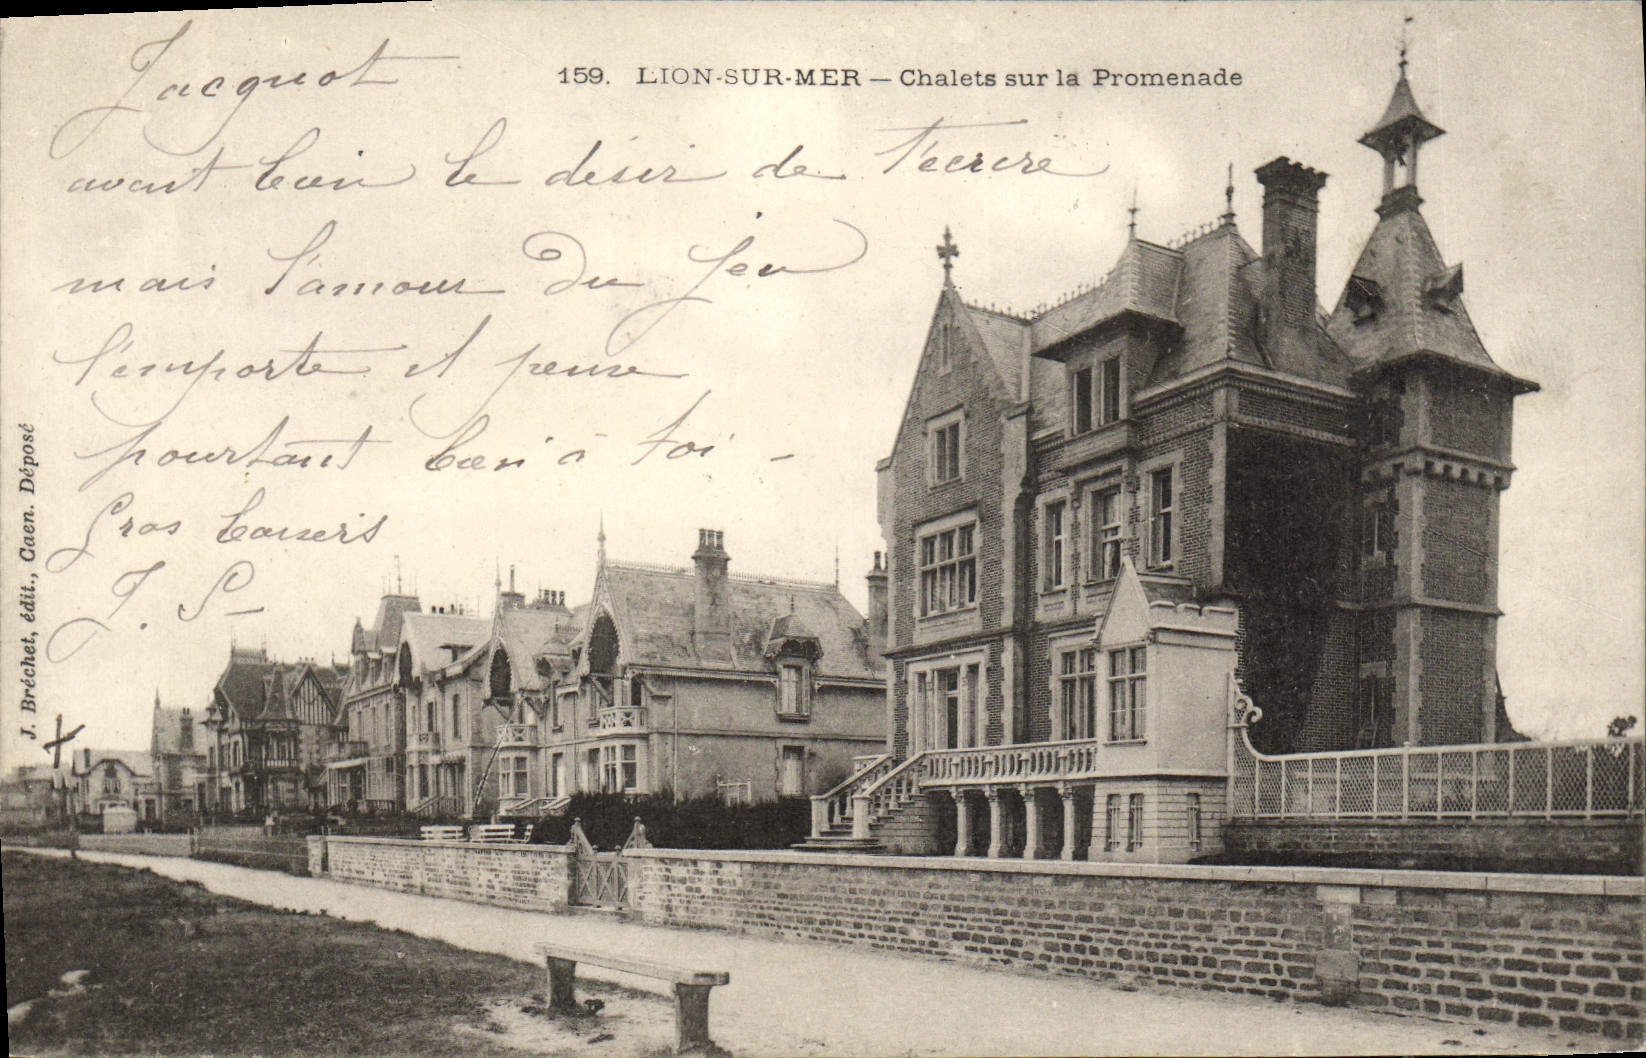 159. LION-SUR-MER — Chalets sur la Promenade
Jacquot
avait bien le désir de t'écrire
mais l'amour du jeu
l'emporte il pense
pourtant bien à toi -
Gros baisers
J. S-
J. Bréchet, édit., Caen. Déposé